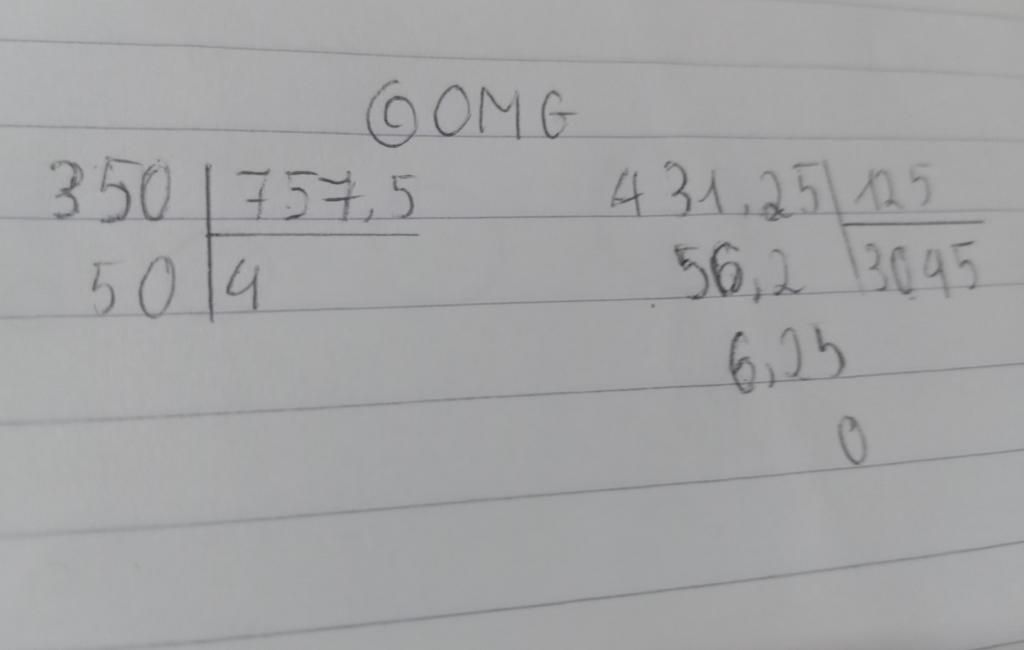 © OMG
350 757,5 431,25 125
50 4 56,2 3045
6,25
0